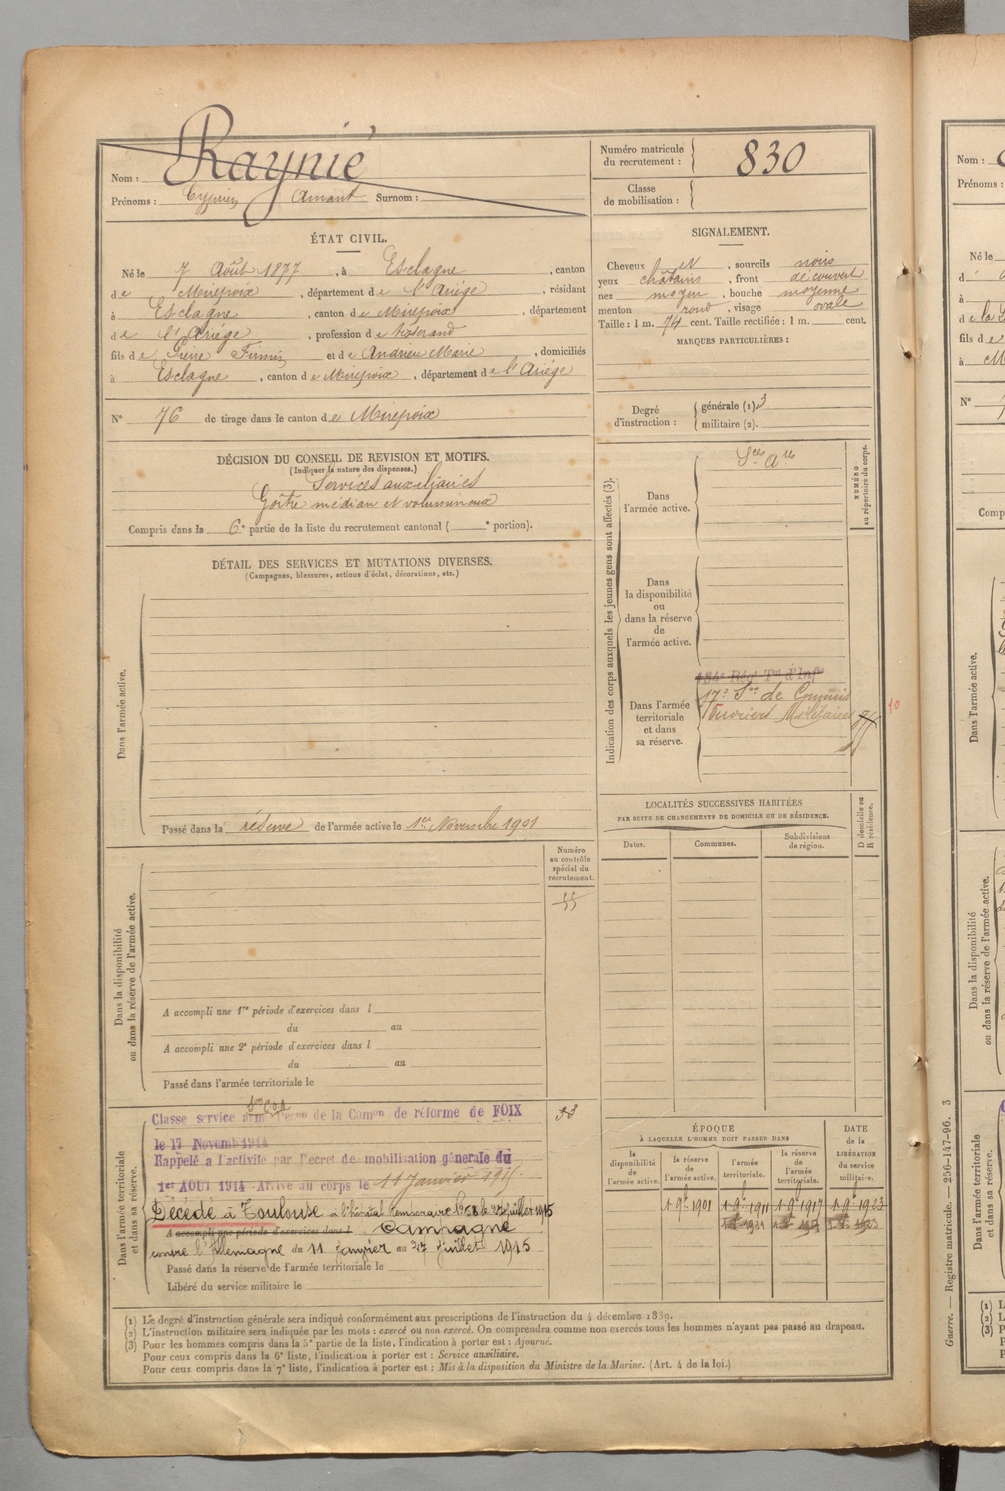 Nom : Raynié
Prénoms : Cyprien Amant Surnom :
Numéro matricule du recrutement : 830
Classe de mobilisation :
ÉTAT CIVIL.
Né le 7 Août 1877, à Esclagne, canton
de Mirepoix, département de l'Ariège, résidant
à Esclagne, canton de Mirepoix, département
de l'Ariège, profession de
fils de Pierre Firmin et de Andrieu Marie, domiciliés
à Esclagne, canton de Mirepoix, département de l'Ariège
N° 76 de tirage dans le canton de Mirepoix
SIGNALEMENT.
Cheveux et, sourcils noirs
yeux châtains, front découvert
nez moyen, bouche moyenne
menton rond, visage ovale
Taille : 1 m. 74 cent. Taille rectifiée : 1 m. cent.
MARQUES PARTICULIÈRES :
Degré d'instruction : générale (1). 3
militaire (2).
DÉCISION DU CONSEIL DE REVISION ET MOTIFS.
(Indiquer la nature des dispenses.)
Services auxiliaires
Goître médian et volumineux
Compris dans la 6e partie de la liste du recrutement cantonal ( e portion).
DÉTAIL DES SERVICES ET MUTATIONS DIVERSES.
(Campagnes, blessures, actions d'éclat, décorations, etc.)
Dans l'armée active.
Passé dans la réserve de l'armée active le 1er Novembre 1901
Indication des corps auxquels les jeunes gens sont affectés (3).
NUMÉRO au répertoire du corps.
Dans l'armée active.
Sces Ares
Dans la disponibilité ou dans la réserve de l'armée active.
Dans l'armée territoriale et dans sa réserve.
134e Régt Tal d'Infie
17e Son de Commis
Ouvriers Militaires
10
LOCALITÉS SUCCESSIVES HABITÉES
PAR SUITE DE CHANGEMENTS DE DOMICILE OU DE RÉSIDENCE.
Dates. Communes. Subdivisions de région.
D domicile ou R résidence.
Numéro au contrôle spécial du recrutement.
55
Dans la disponibilité ou dans la réserve de l'armée active.
A accompli une 1re période d'exercices dans l
du au
A accompli une 2e période d'exercices dans l
du au
Passé dans l'armée territoriale le
Dans l'armée territoriale et dans sa réserve.
Classe service armé Décon de la Comon de réforme de FOIX
le 17 Novemb 1914
Rappelé a l'activité par Decret de mobilisation génerale du
1er AOUT 1914 Arrivé au corps le 11 Janvier 1915
Décédé à Toulouse à l'hôpital temporaire le 27 juillet 1915
A accompli une période d'exercices dans l Campagne
contre l'Allemagne du 11 janvier au 27 juillet 1915
Passé dans la réserve de l'armée territoriale le
Libéré du service militaire le
ÉPOQUE
À LAQUELLE L'HOMME DOIT PASSER DANS
la disponibilité de l'armée active.
la réserve de l'armée active.
l'armée territoriale.
la réserve de l'armée territoriale.
DATE de la LIBÉRATION du service militaire.
1 9e 1901 1 9e 1911 1 9e 1917 1 9e 1923
(1) Le degré d'instruction générale sera indiqué conformément aux prescriptions de l'instruction du 4 décembre 1889.
(2) L'instruction militaire sera indiquée par les mots : exercé ou non exercé. On comprendra comme non exercés tous les hommes n'ayant pas passé au drapeau.
(3) Pour les hommes compris dans la 5e partie de la liste, l'indication à porter est : Ajourné.
Pour ceux compris dans la 6e liste, l'indication à porter est : Service auxiliaire.
Pour ceux compris dans la 7e liste, l'indication à porter est : Mis à la disposition du Ministre de la Marine. (Art. 4 de la loi.)
Guerre. — Registre matricule. — 256-147-96. 3
Nom :
Prénoms :
Né le
à
fils d
N°
Comp
Dans l'armée active.
Dans la disponibilité ou dans la réserve de l'armée active.
Dans l'armée territoriale et dans sa réserve.
(1) L
(2) L
(3) P